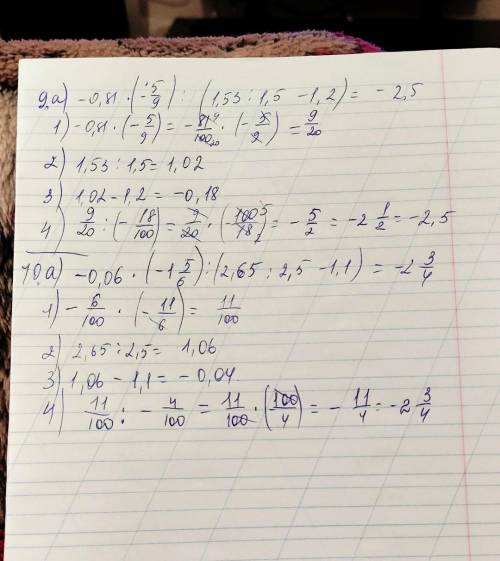 9.а) -0,81 · (-5/9) : (1,53 : 1,5 - 1,2) = -2,5
1) -0,81 · (-5/9) = -81/100 · (-5/9) = 9/20
2) 1,53 : 1,5 = 1,02
3) 1,02 - 1,2 = -0,18
4) 9/20 : (-18/100) = 9/20 · (-100/18) = -5/2 = -2 1/2 = -2,5
10.а) -0,06 · (-1 5/6) : (2,65 : 2,5 - 1,1) = -2 3/4
1) -6/100 · (-11/6) = 11/100
2) 2,65 : 2,5 = 1,06
3) 1,06 - 1,1 = -0,04
4) 11/100 : -4/100 = 11/100 · (100/4) = -11/4 = -2 3/4